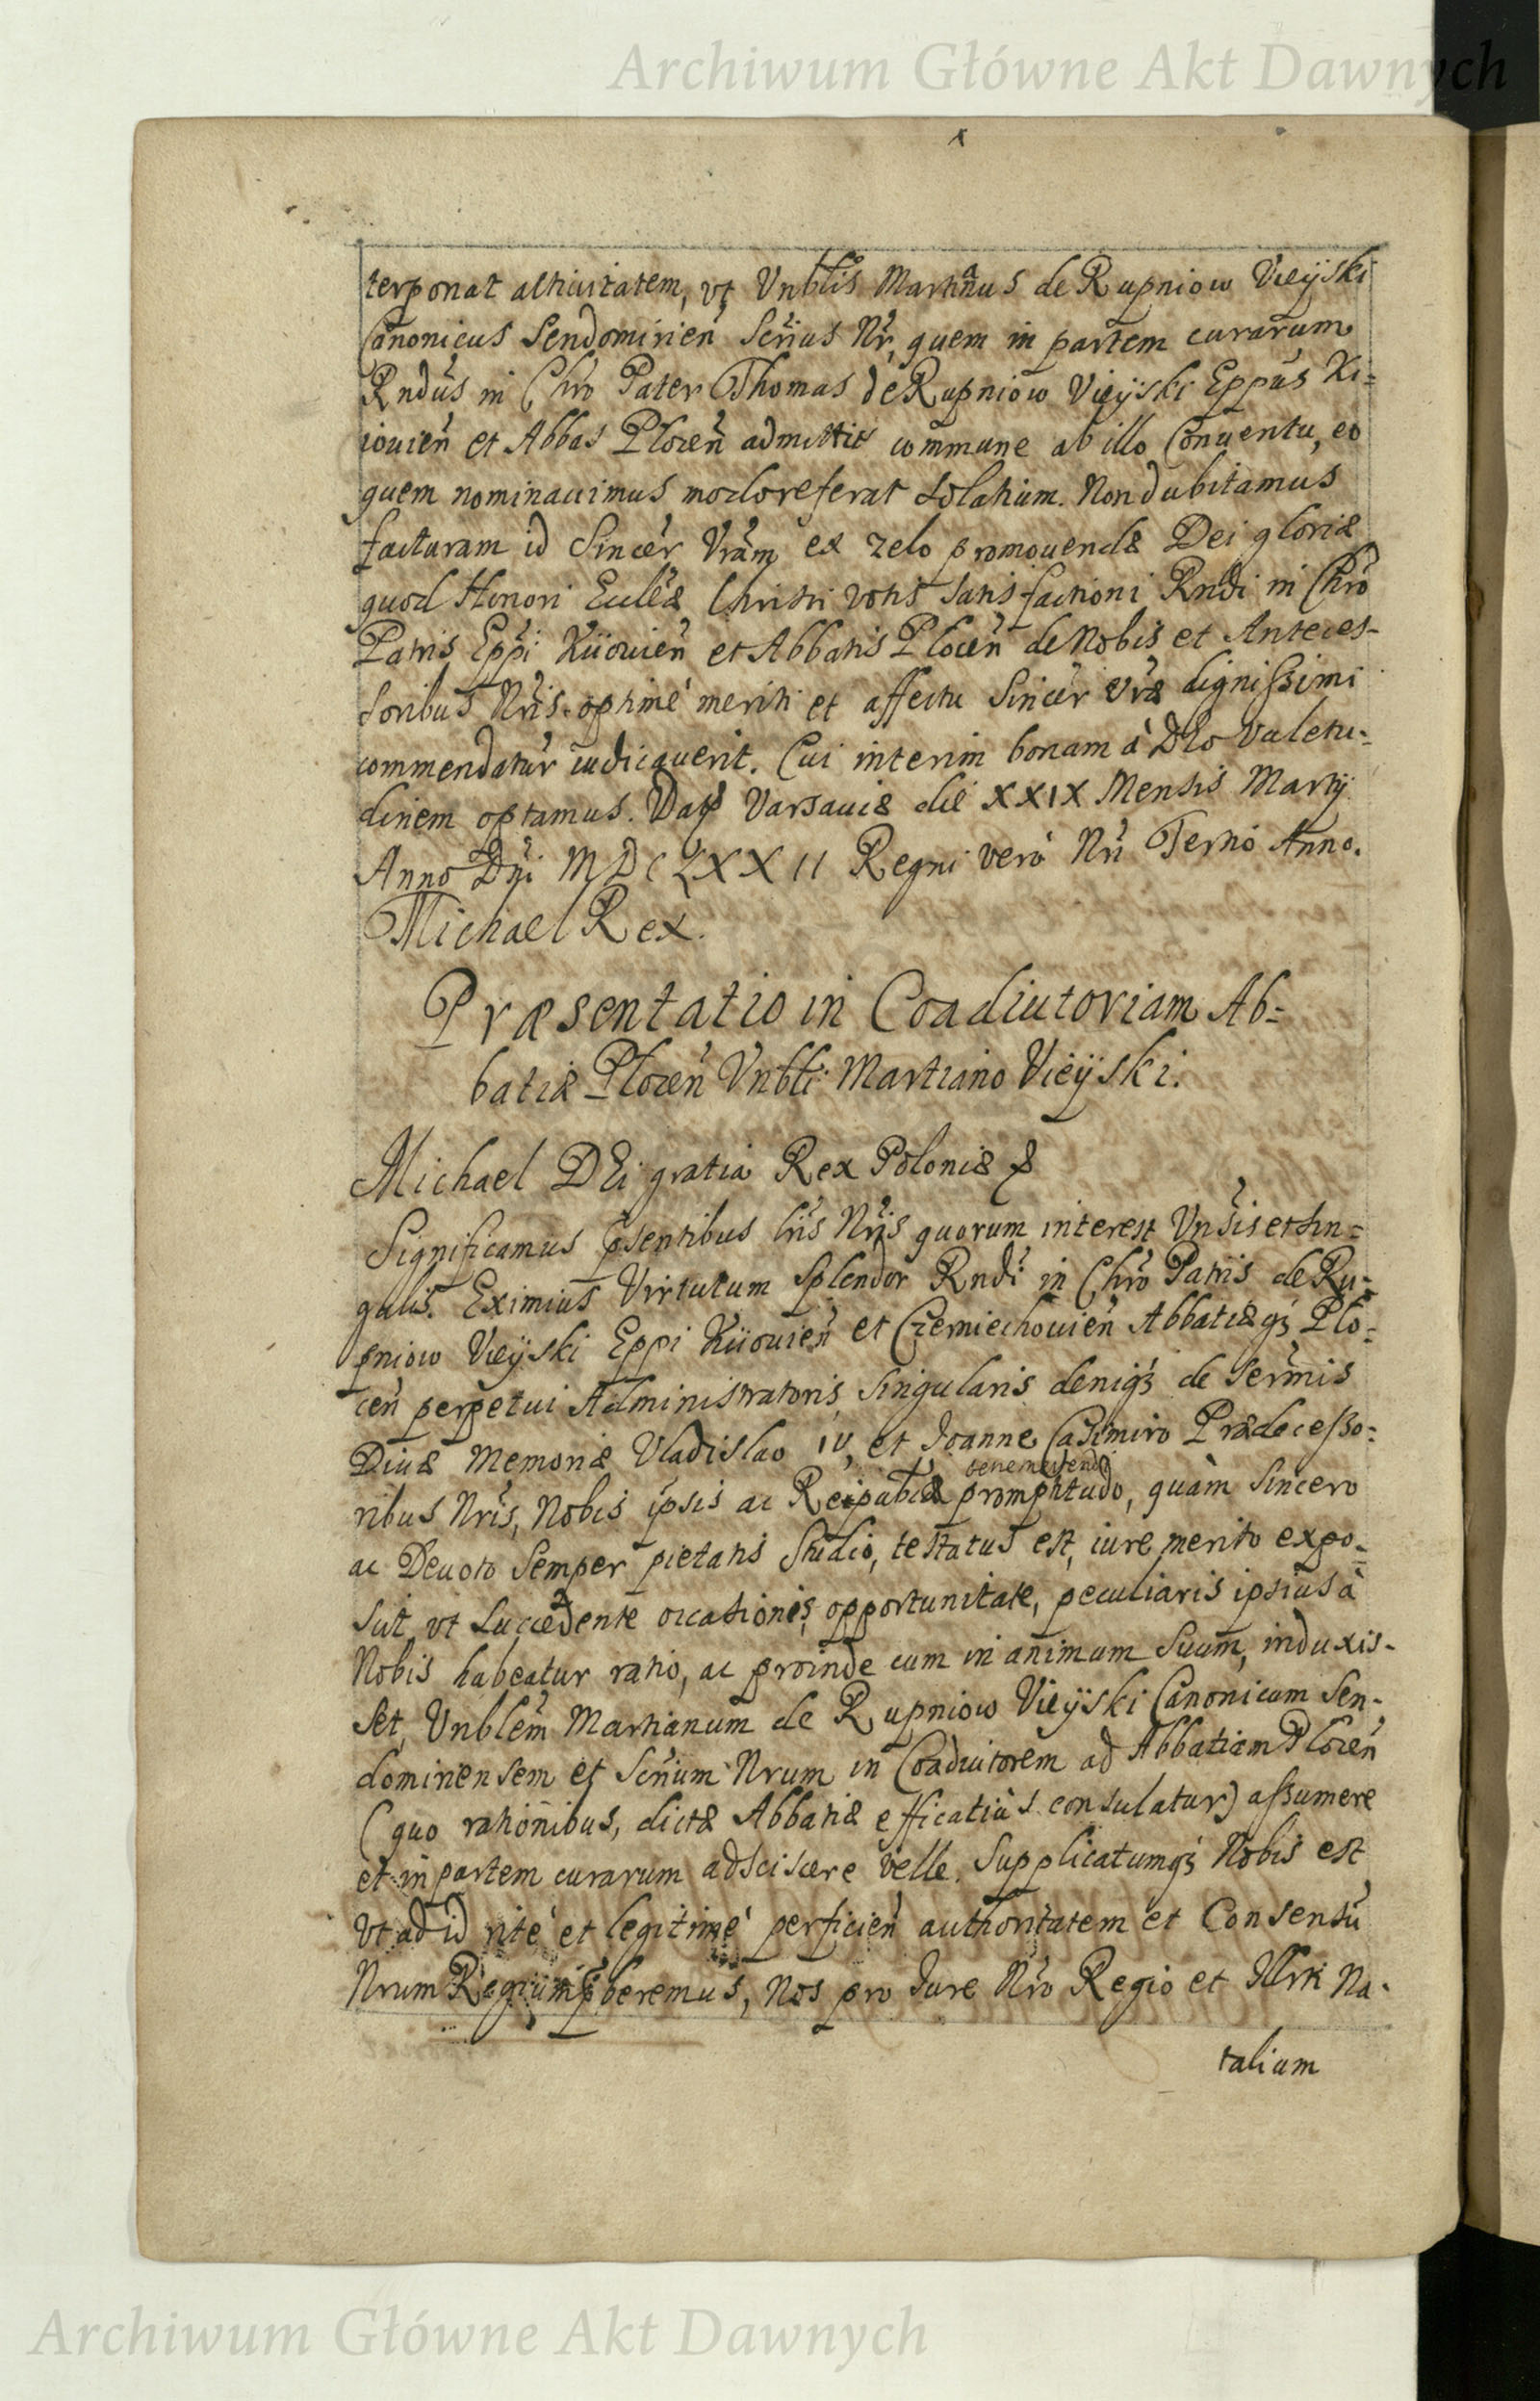 Archiwum Główne Akt Dawnych
terponat actiuitatem, vt Vnblis Martianus de Rupniow Vieÿski
Canonicus Sendomirien Scrius Nr, quem in partem curarum
Rndus in Chro Pater Thomas de Rupniow Vieÿski Eppus Ki=
iouien et Abbas Plocen admittit commune ab illo Conuentu, eo
quem nominauimus modo referat solatium. Non dubitamus
facturam id Sincer Vram ex zelo promouendæ Dei gloriæ
quod Honori Ecclæ Christi votis satisfactioni Rndi in Chro
Patris Eppi Kiiouien et Abbatis Plocen de Nobis et Anteces-
soribus Nris optimè meriti et affectu Sincer Vræ dignissimi
commendatur iudicauerit. Cui interim bonam à Deo valetu=
dinem optamus. Dat Varsauiæ die XXIX Mensis Martÿ
Anno Dni MDCLXXII Regni verò Nri Terno Anno.
Michael Rex.
Præsentatio in Coadiutoriam Ab=
batiæ Plocen Vnbli Martiano Vieÿski.
Michael DEi gratia Rex Poloniæ &
Significamus psentibus lris Nris quorum interest Vnsis et sin=
gulis. Eximius Virtutum splendor Rndi in Chro Patris de Ru=
pniow Vieÿski Eppi Kiiouien et Czerniechouien Abbatiæq3 Plo=
cen perpetui Administratoris, singularis deniq3 de Sermis
Diuæ Memoriæ Vladislao IV, et Joanne Casimiro Prædecesso=
benemerendi
ribus Nris, Nobis ipsis ac Reipublicæ promptitudo, quàm sincero
ac Deuoto Semper pietatis studio, testatus est, iure merito expo=
scit, vt succedente occationis opportunitate, peculiaris ipsius à
Nobis habeatur ratio, ac proinde cum in animum suum, induxis-
set, Vnblem Martianum de Rupniow Vieÿski Canonicum Sen-
domiriensem et Scrium Nrum in Coadiutorem ad Abbatiam Plocen
(quo rationibus, dictæ Abbatiæ efficatiùs consulatur) assumere
et in partem curarum adsciscere velle. Supplicatumq3 Nobis est
vt ad id ritè et legitimè perficien authoritatem et Consensu
Nrum Regium pberemus, Nos pro Jure Nro Regio et Na-
talium
Archiwum Główne Akt Dawnych